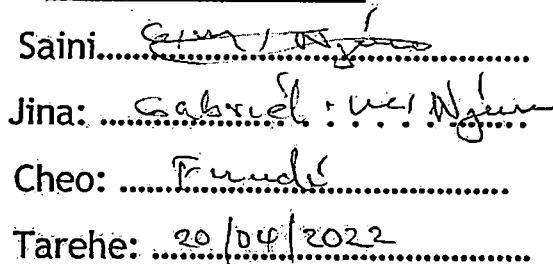 Saini
Jina: Gabriel
Cheo: Fundi
Tarehe: 20/04/2022